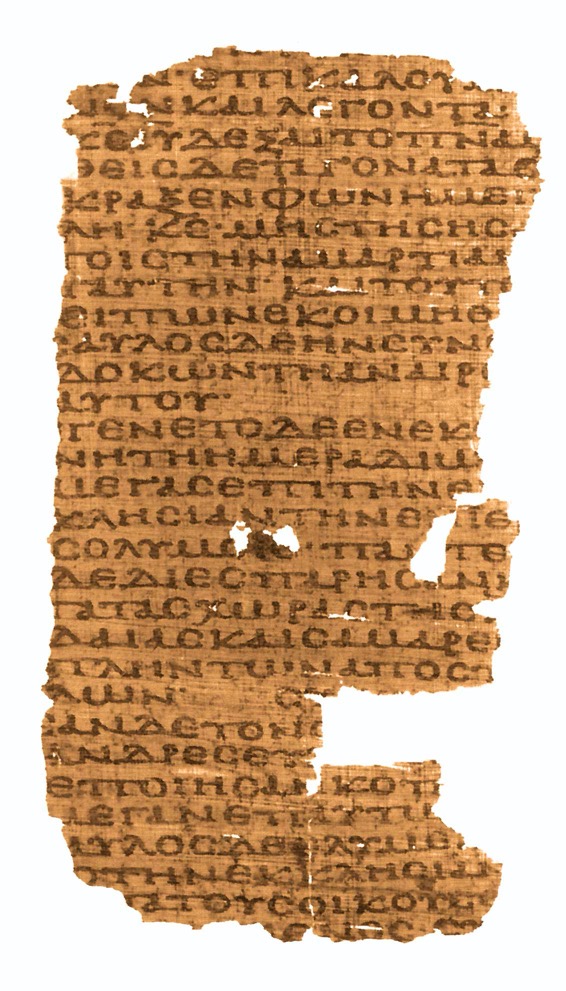 Ν ΕΠΙΚΑΛΟΥ
Ν ΚΑΙ ΛΕΓΟΝΤΑ
ΕΙΥ ΔΕΞΑΙ ΤΟ ΠΝΑ
ΘΕΙΣ ΔΕ ΤΑ ΓΟΝΑΤΑ Ε
ΚΡΑΞΕΝ ΦΩΝΗ ΜΕΓ
ΛΗ· ΚΕ· ΜΗ ΣΤΗΣΗΣ
ΤΟΙΣ ΤΗΝ ΑΜΑΡΤΙΑΝ
ΤΑΥΤΗΝ ΚΑΙ ΤΟΥΤ
ΕΙΠΩΝ ΕΚΟΙΜΗΘ
ΑΥΛΟΣ ΔΕ ΗΝ ΣΥΝ
ΔΟΚΩΝ ΤΗ ΑΝΑΙΡ
ΑΥΤΟΥ·
ΓΕΝΕΤΟ ΔΕ ΕΝ ΕΚ
ΝΗ ΤΗ ΗΜΕΡΑ ΔΙΩ
ΜΕΓΑΣ ΕΠΙ ΤΗΝ Ε
ΚΛΗΣΙΑΝ ΤΗΝ ΕΝ ΙΕ
ΣΟΛΥΜΟΙΣ· ΠΑΝΤΕ
ΔΕ ΔΙΕΣΠΑΡΗΣΑΝ
ΤΑ ΤΑΣ ΧΩΡΑΣ ΤΗΣ
ΔΑΙΑΣ ΚΑΙ ΣΑΜΑΡΕ
ΠΛΗΝ ΤΩΝ ΑΠΟΣ
ΛΩΝ· Σ
ΑΝ ΔΕ ΤΟΝ
ΑΝΔΡΕΣ ΕΥ
ΕΠΟΙΗΣΑΝ ΚΟΠ
ΜΕΓΑΝ ΕΠ ΑΥΤΩ
ΑΥΛΟΣ ΔΕ ΕΛΥΜΕ
ΤΗΝ ΕΚΚΛΗΣΙΑ
Α ΤΟΥΣ ΟΙΚΟΥΣ